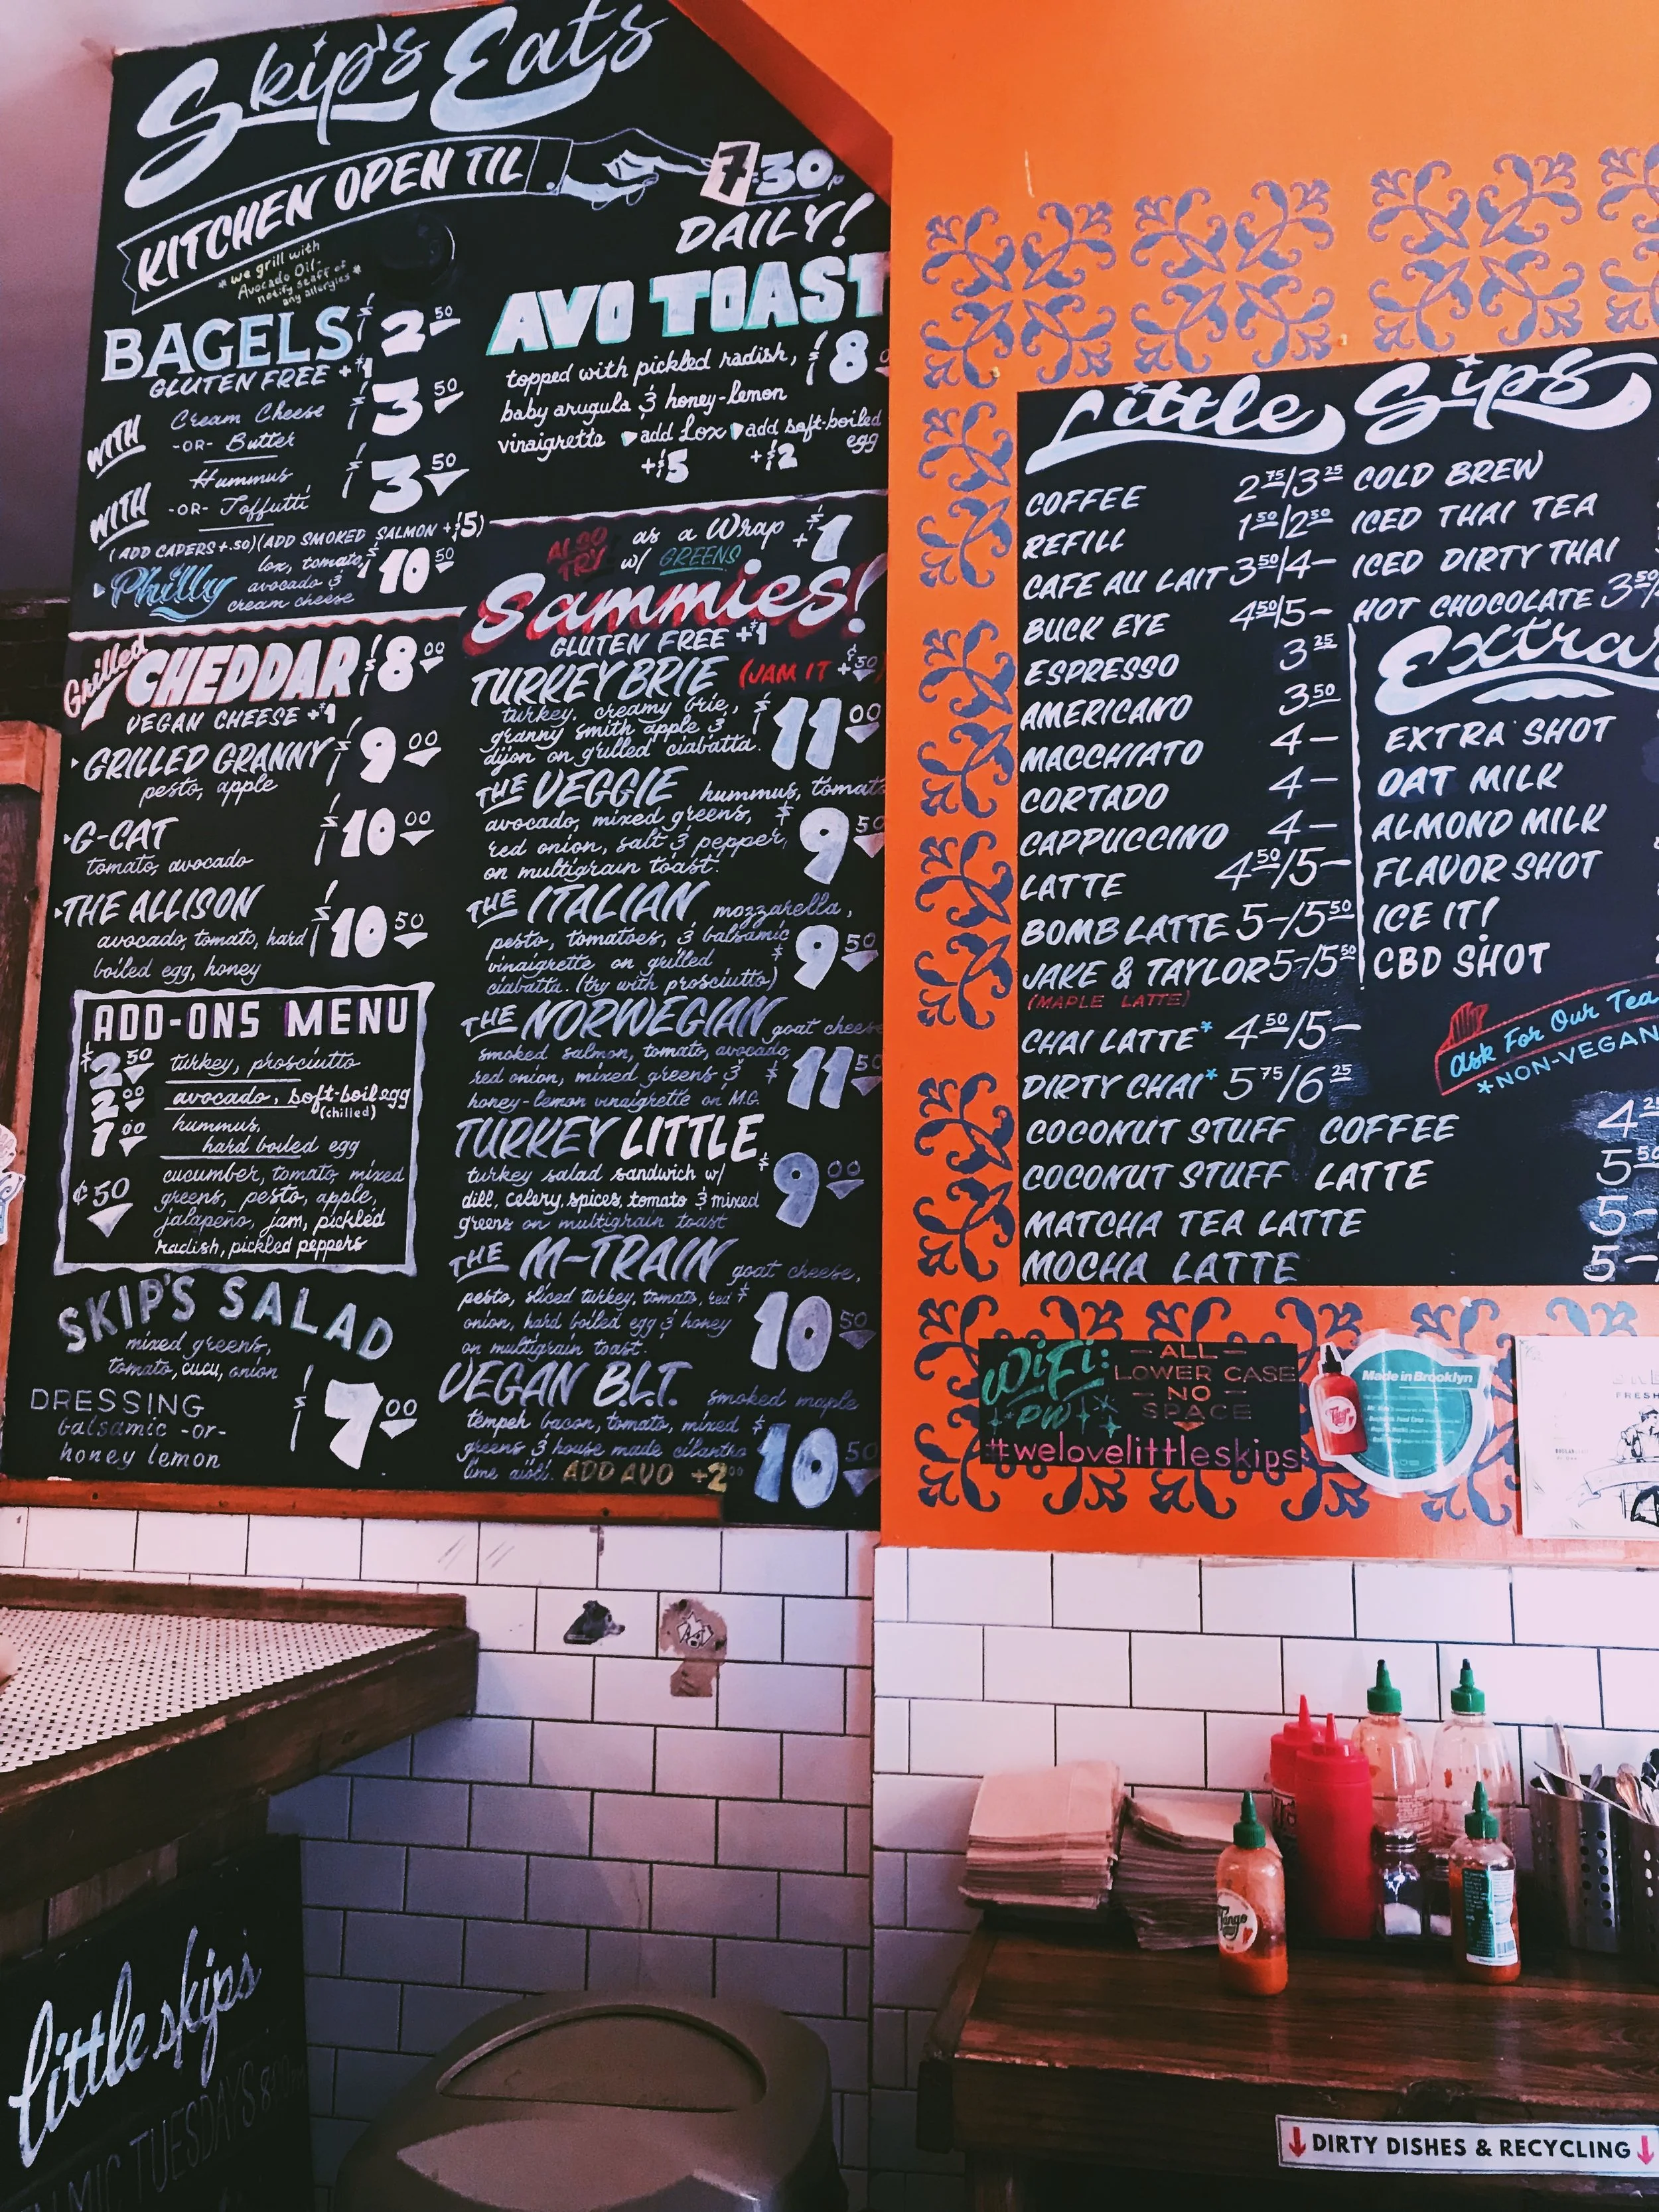 Skip's Eats
KITCHEN OPEN TIL
7:30P
DAILY!
*we grill with
Avocado Oil-
notify staff of
any allergies*
BAGELS $2 50
GLUTEN FREE +$1
WITH Cream Cheese $3 50
-OR- Butter
WITH Hummus $3 50
-OR- Toffutti
(ADD CAPERS +.50)(ADD SMOKED SALMON +$5)
Philly lox, tomato, $10 50
avocado &
cream cheese
Grilled CHEDDAR $8 00
VEGAN CHEESE +$1
GRILLED GRANNY $9 00
pesto, apple
G-CAT $10 00
tomato, avocado
THE ALLISON $10 50
avocado, tomato, hard
boiled egg, honey
ADD-ONS MENU
$2 50 turkey, prosciutto
2 00 avocado, soft-boil egg
(chilled)
1 00 hummus,
hard boiled egg
¢50 cucumber, tomato, mixed
greens, pesto, apple,
jalapeño, jam, pickled
radish, pickled peppers
SKIP'S SALAD
mixed greens,
tomato, cucu, onion
DRESSING $7 00
balsamic -or-
honey lemon
AVO TOAST
topped with pickled radish, $8
baby arugula & honey-lemon
vinaigrette add Lox add soft-boiled
egg
+$5 +$2
ALSO TRY as a Wrap +$1
w/ GREENS
Sammies!
GLUTEN FREE +$1
TURKEY BRIE (JAM IT +¢50
turkey, creamy brie, $11 00
granny smith apple &
dijon on grilled ciabatta.
THE VEGGIE hummus, tomato
avocado, mixed greens, $9 50
red onion, salt & pepper,
on multigrain toast.
THE ITALIAN mozzarella,
pesto, tomatoes, & balsamic $9 50
vinaigrette on grilled
ciabatta. (try with prosciutto)
THE NORWEGIAN goat cheese
smoked salmon, tomato, avocado, $11 50
red onion, mixed greens &
honey-lemon vinaigrette on M.G.
TURKEY LITTLE $9 00
turkey salad sandwich w/
dill, celery, spices, tomato & mixed
greens on multigrain toast
THE M-TRAIN goat cheese,
pesto, sliced turkey, tomato, red $10 50
onion, hard boiled egg & honey
on multigrain toast.
VEGAN B.L.T. smoked maple
tempeh bacon, tomato, mixed $10 50
greens & house made cilantro
lime aioli. ADD AVO +2 00
Little Sips
COFFEE 2 75/3 25
REFILL 1 50/2 50
CAFE AU LAIT 3 50/4-
BUCK EYE 4 50/5-
ESPRESSO 3 25
AMERICANO 3 50
MACCHIATO 4-
CORTADO 4-
CAPPUCCINO 4-
LATTE 4 50/5-
BOMB LATTE 5-/5 50
JAKE & TAYLOR 5-/5 50
(MAPLE LATTE)
CHAI LATTE* 4 50/5-
DIRTY CHAI* 5 75/6 25
COCONUT STUFF COFFEE 4 25
COCONUT STUFF LATTE 5 50
MATCHA TEA LATTE 5-
MOCHA LATTE 5-
COLD BREW
ICED THAI TEA
ICED DIRTY THAI
HOT CHOCOLATE 3 50/
Extra
EXTRA SHOT
OAT MILK
ALMOND MILK
FLAVOR SHOT
ICE IT!
CBD SHOT
Ask For Our Tea
*NON-VEGAN
WiFi:
PW
-ALL-
LOWER CASE
-NO-
SPACE
#welovelittleskips
Made in Brooklyn
FRESH
Tango
little skips
MIC TUESDAYS
DIRTY DISHES & RECYCLING